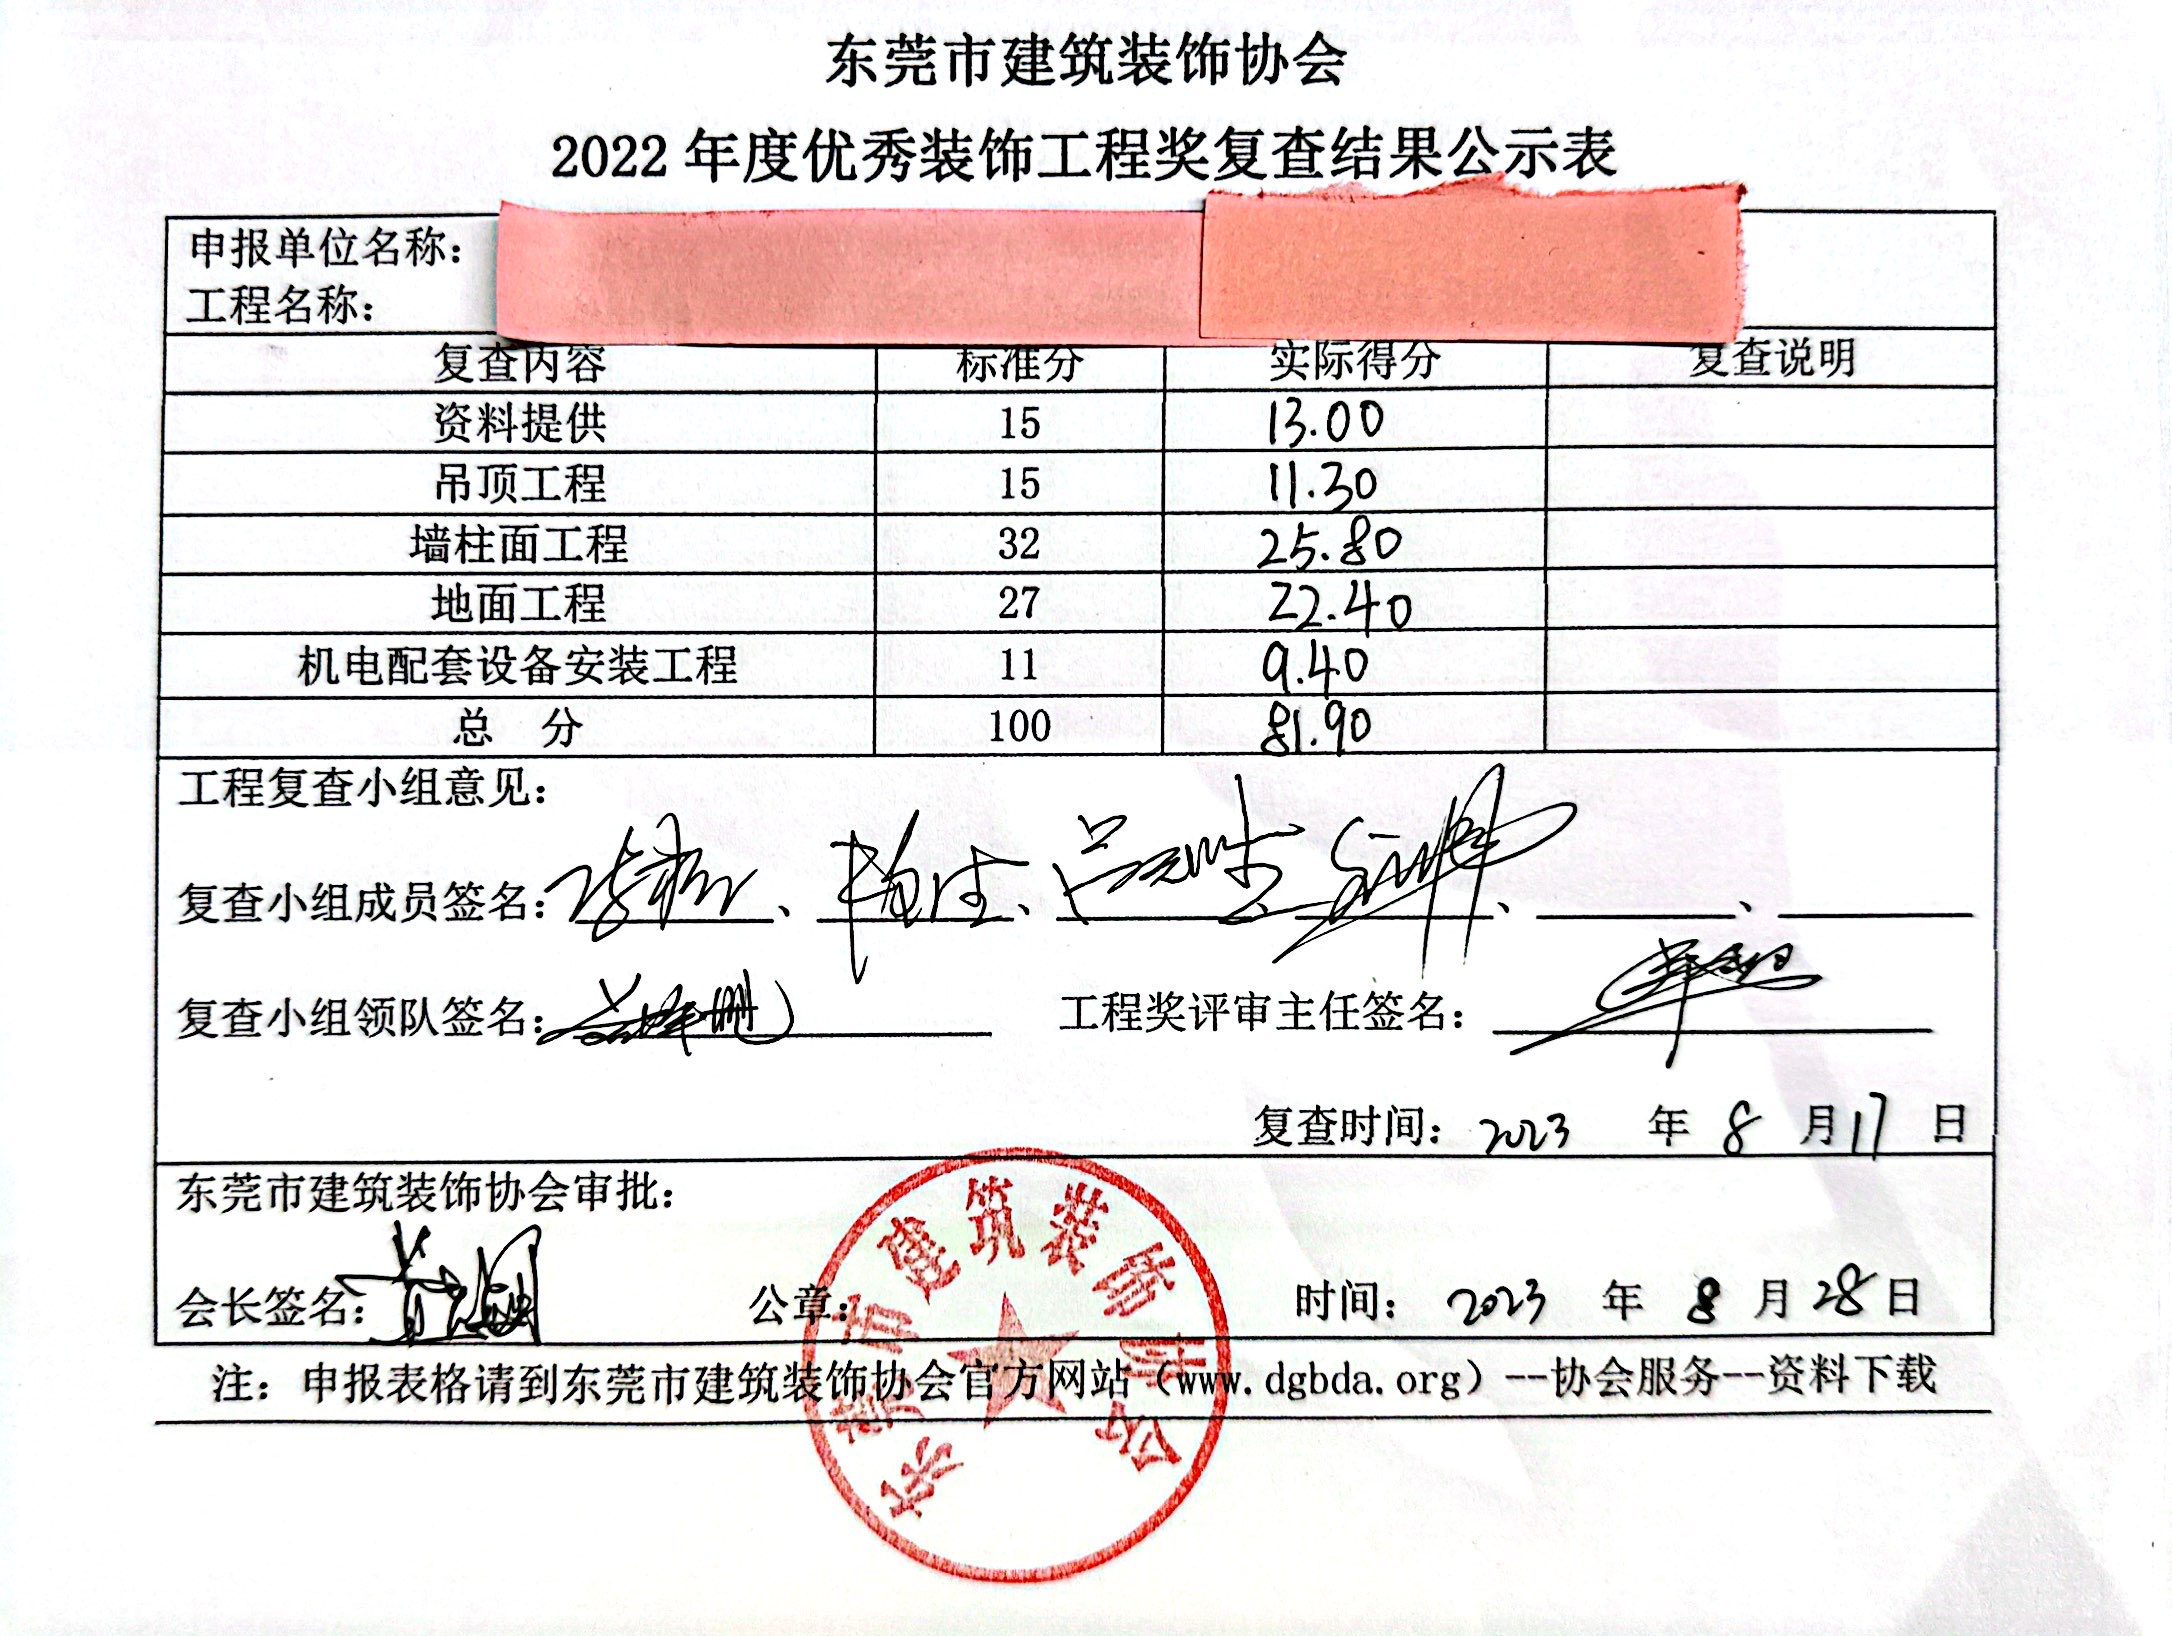 东莞市建筑装饰协会
2022 年度优秀装饰工程奖复查结果公示表
申报单位名称：
工程名称：
复查内容 标准分 实际得分 复查说明
资料提供 15 13.00
吊顶工程 15 11.30
墙柱面工程 32 25.80
地面工程 27 22.40
机电配套设备安装工程 11 9.40
总 分 100 81.90
工程复查小组意见：
复查小组成员签名：、、、、
复查小组领队签名： 工程奖评审主任签名：
复查时间：2023 年 8 月 17 日
东莞市建筑装饰协会审批：
会长签名： 公章： 时间：2023 年 8 月 28 日
东莞市建筑装饰协会
注：申报表格请到东莞市建筑装饰协会官方网站（www.dgbda.org）--协会服务--资料下载